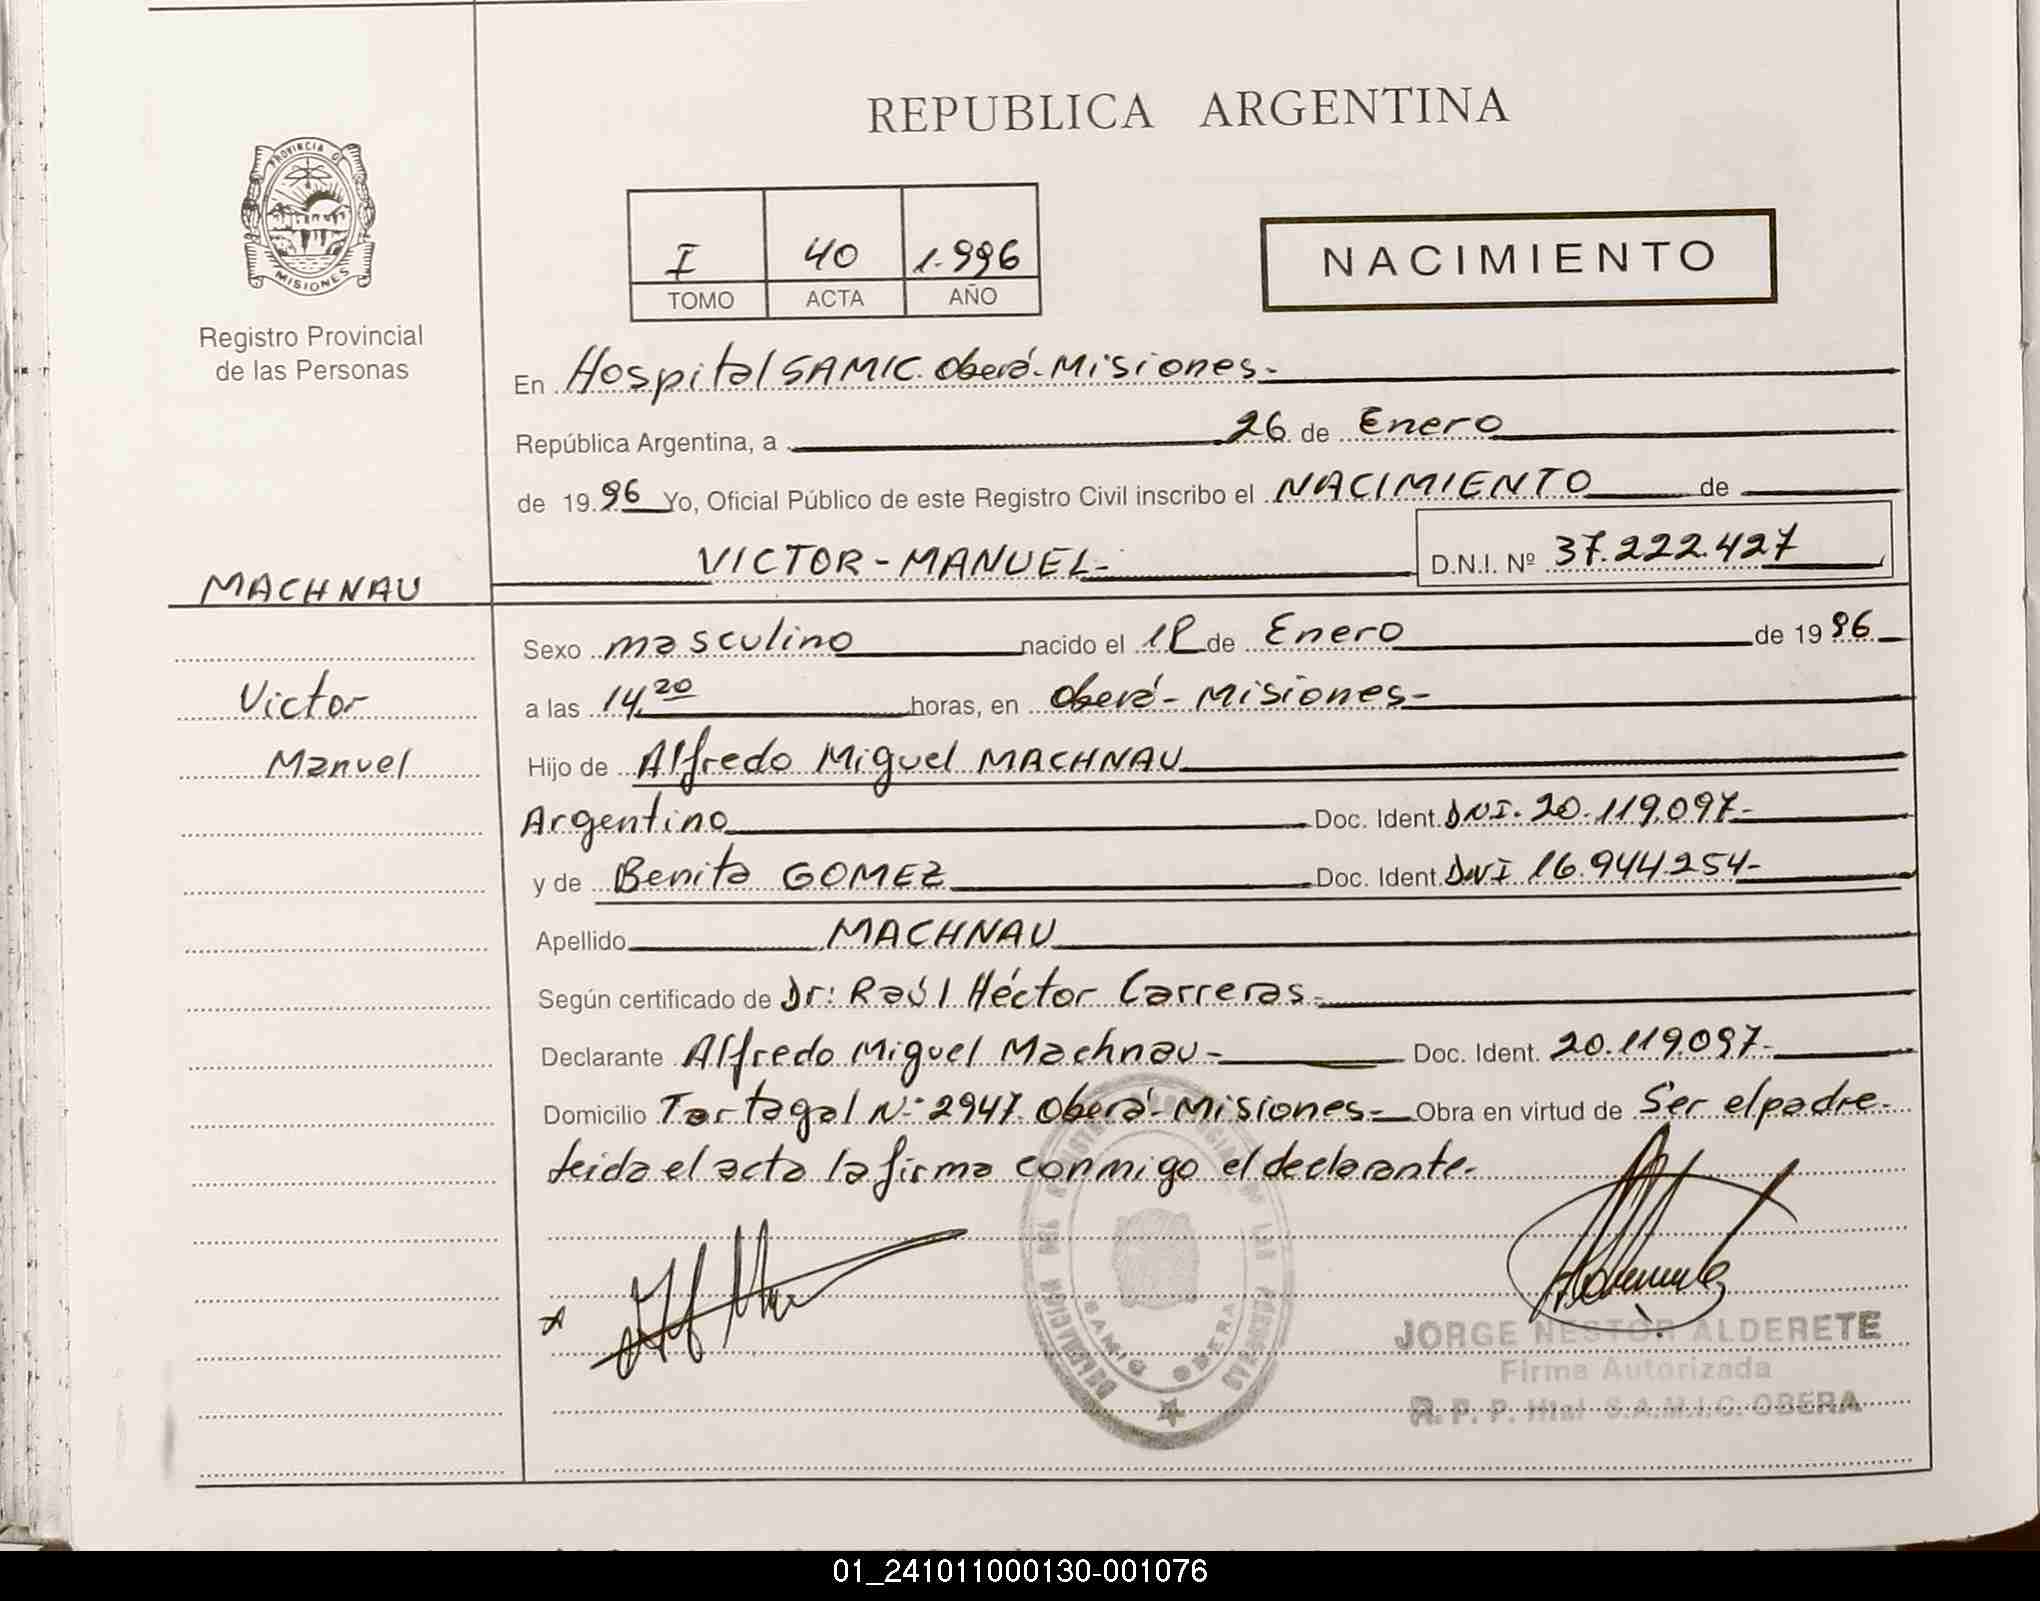 REPUBLICA ARGENTINA
PROVINCIA DE
MISIONES
Registro Provincial
de las Personas
I 40 1.996
TOMO ACTA AÑO
NACIMIENTO
En Hospital SAMIC. Oberá-Misiones-
República Argentina, a 26 de Enero
de 19 96 Yo, Oficial Público de este Registro Civil inscribo el NACIMIENTO de
VICTOR-MANUEL- D.N.I. Nº 37.222.427
MACHNAU
Victor
Manuel
Sexo masculino nacido el de Enero de 19 96
a las 14,20 horas, en Oberá-Misiones-
Hijo de Alfredo Miguel MACHNAU
Argentino Doc. Ident. DNI. 20.119.097-
y de Benita GOMEZ Doc. Ident. DNI 16.944.254-
Apellido MACHNAU
Según certificado de Dr: Raúl Héctor Carreras-
Declarante Alfredo Miguel Machnau- Doc. Ident. 20.119.097-
Domicilio Tartagal N° 2947. Oberá-Misiones- Obra en virtud de Ser el padre-
Leida el acta la firma conmigo el declarante-
JORGE NESTOR ALDERETE
Firma Autorizada
R. P. P. Htal S.A.M.I.C. OBERA
SAMIC OBERA
01_241011000130-001076